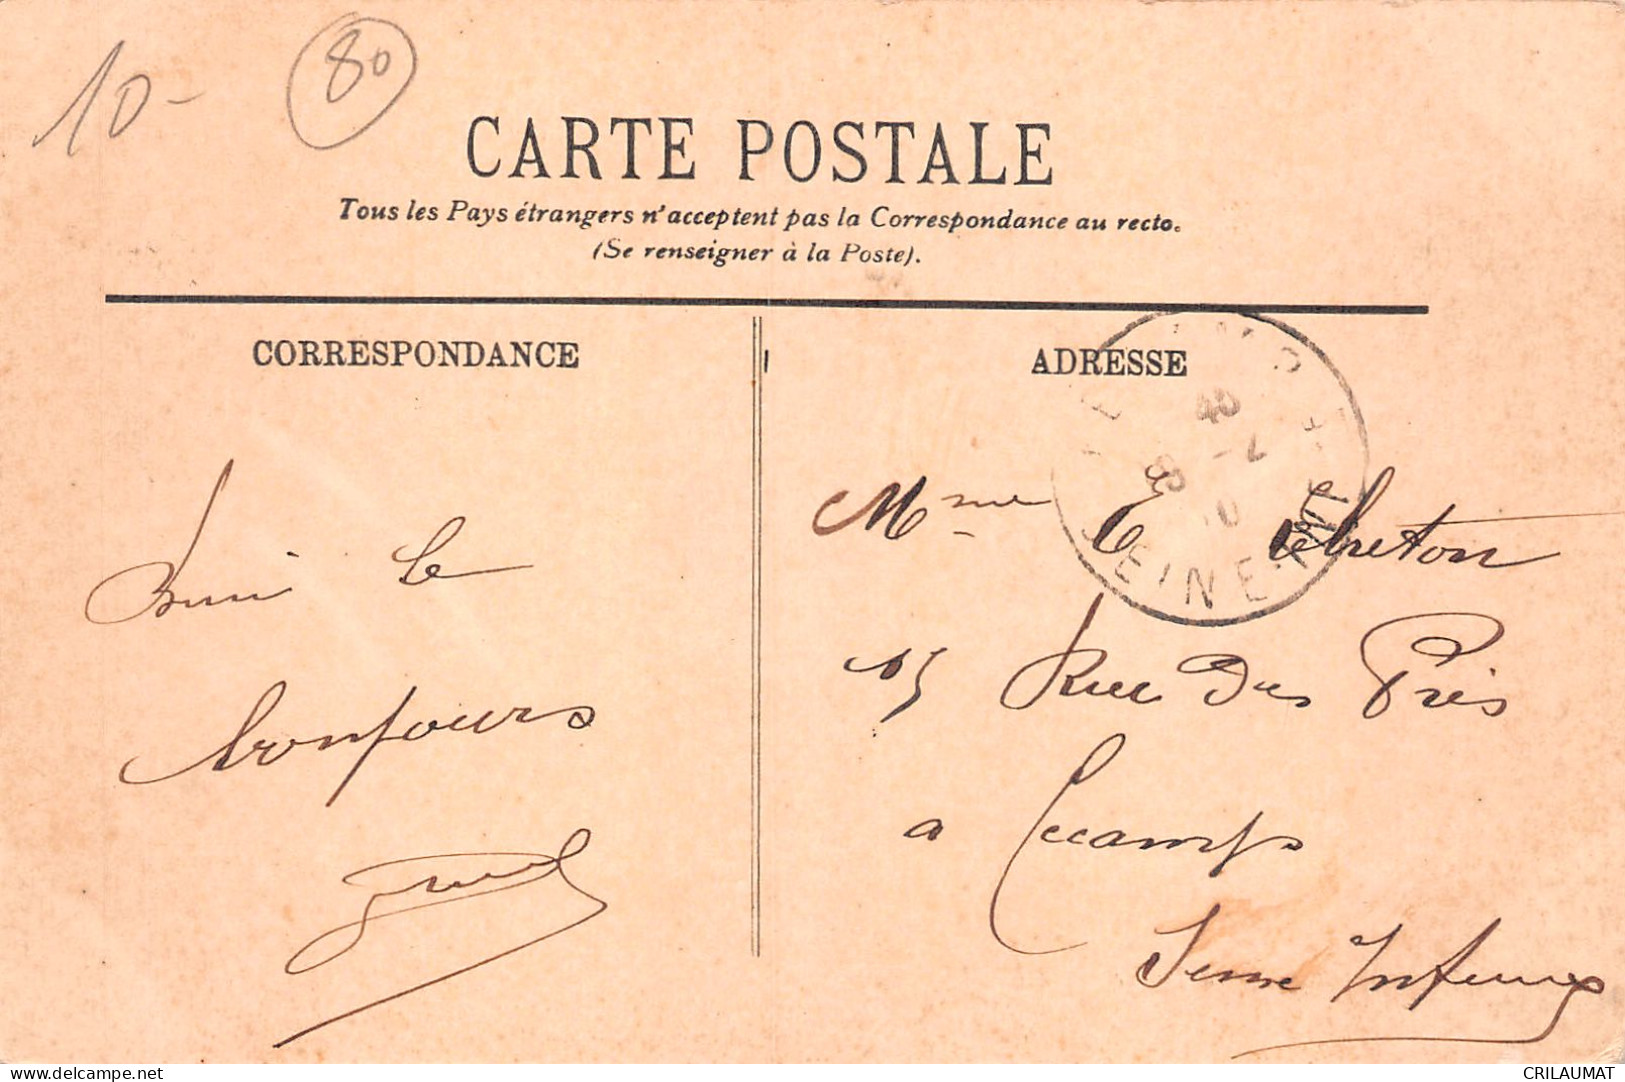 10-
80
CARTE POSTALE
Tous les Pays étrangers n'acceptent pas la Correspondance au recto.
(Se renseigner à la Poste).
CORRESPONDANCE
ADRESSE
SEINE-INF
Mme E Lebreton
15 Rue Des Prés
a Fécamps
Seine Inferieure
le
bonjours
delcampe.net
CRILAUMAT